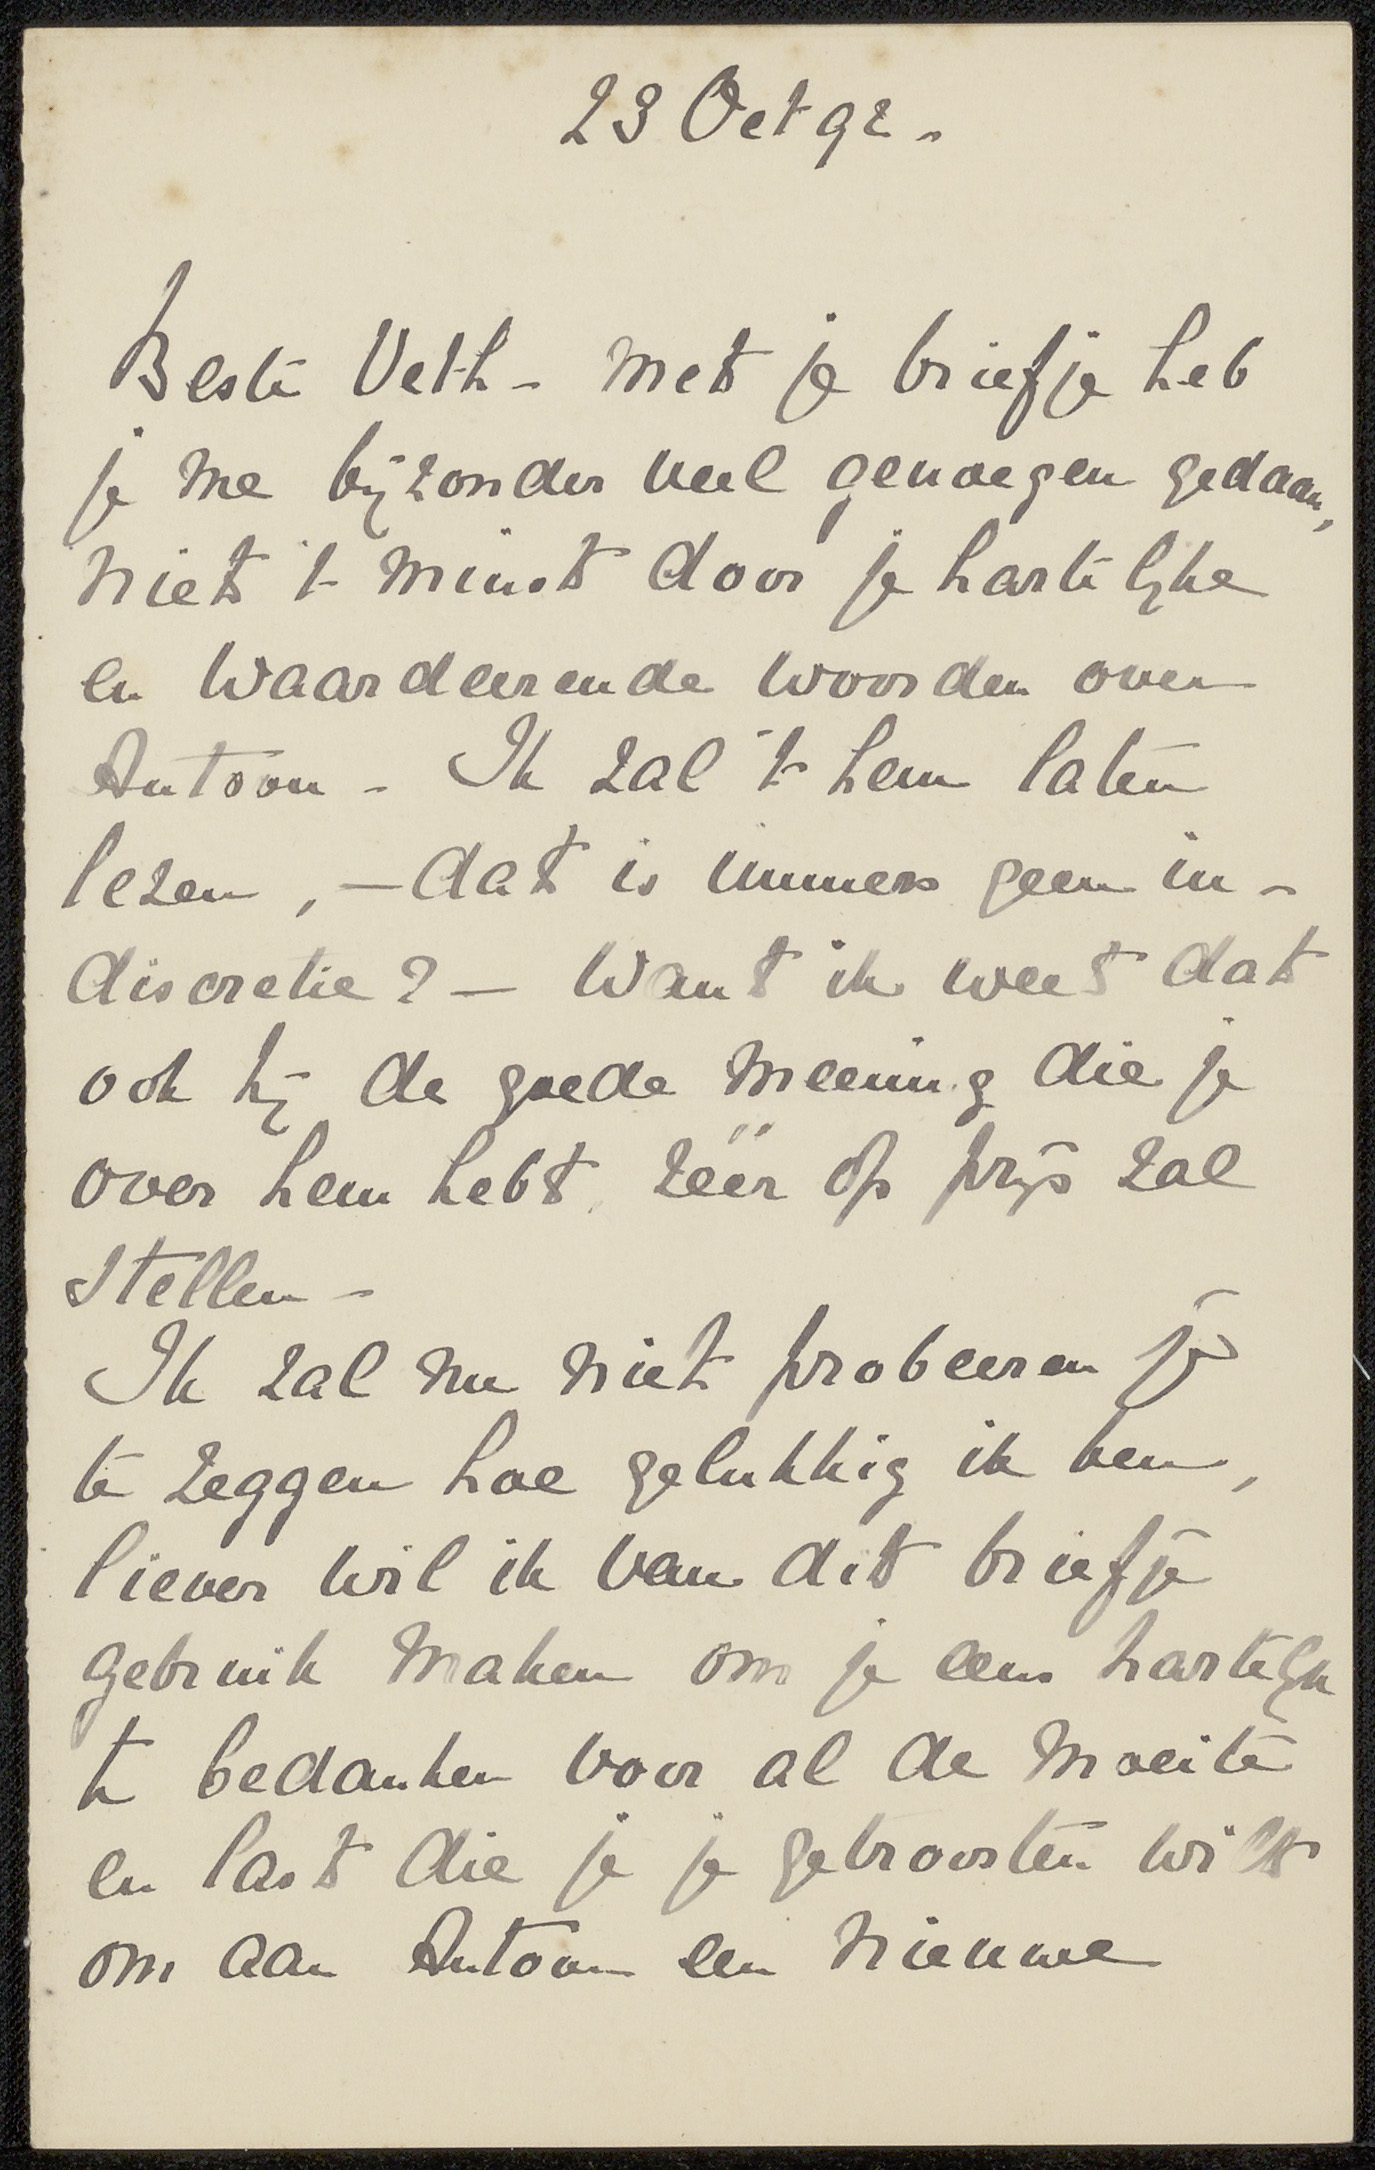 23 Oct 92.
Beste Veth - Met je briefje heb
je me bijzonder veel genoegen gedaan,
niet 't minst door je hartelijke
en waardeerende woorden over
Antoon - Ik zal 't hem laten
lezen, - dat is immers geen in-
discretie? - Want ik weet dat
ook hij de goede meening die je
over hem hebt zéér op prijs zal
stellen -
Ik zal nu niet probeeren je
te zeggen hoe gelukkig ik ben,
liever wil ik van dit briefje
gebruik maken om je eens hartelijk
te bedanken voor al de moeite
en last die je je getroosten wilt
om aan Antoon een nieuwe